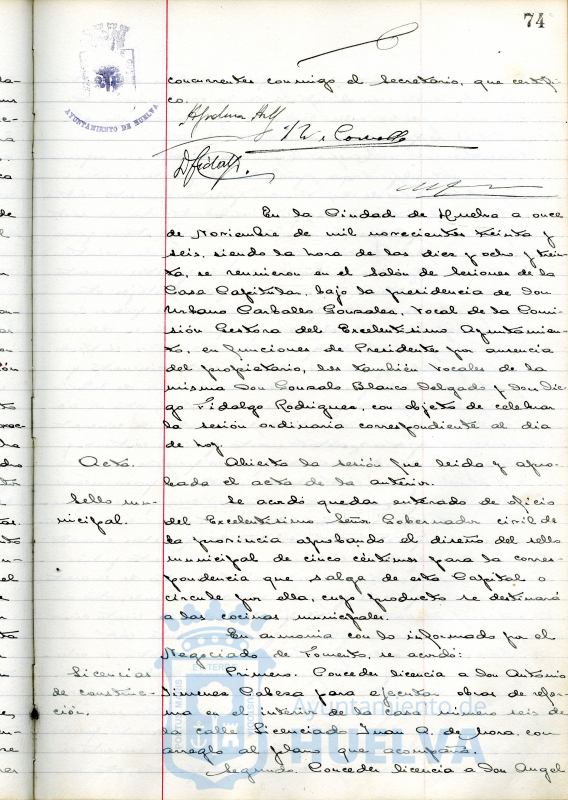 74
AYUNTAMIENTO DE HUELVA
concurrentes conmigo el Secretario, que certifi-
co.
D. Fidalgo
En la Ciudad de Huelva a once
de Noviembre de mil novecientos treinta y
seis, siendo la hora de las diez y ocho y trein-
ta, se reunieron en el Salón de Sesiones de la
Casa Capitular, bajo la presidencia de Don
Urbano Carballo Gonzales, Vocal de la Comi-
sión Gestora del Excelentísimo Ayuntamien-
to, en funciones de Presidente por ausencia
del propietario, los también Vocales de la
misma Don Gonzalo Blanco Delgado y Don Die-
go Fidalgo Rodrigues, con objeto de celebrar
la sesión ordinaria correspondiente al dia
de hoy.
Acta. Abierta la sesión fue leida y apro-
bada el acta de la anterior.
Sello mu- Se acordó quedar enterado de oficio
nicipal. del Excelentísimo Señor Gobernador civil de
la provincia aprobando el diseño del sello
municipal de cinco céntimos para la corres-
pondencia que salga de esta Capital o
circule por ella, cuyo producto se destinará
a las cocinas municipales.
En armonia con lo informado por el
Negociado de Fomento, se acordó:
Licencias Primero. Conceder licencia a Don Antonio
de construc- Jimenes Cabeza para ejecutar obras de refor-
ción. ma en el interior de la casa número seis de
la calle Licenciado Juan A. de Mora, con
arreglo al plano que acompaña.
Segundo. Conceder licencia a Don Angel
Ayuntamiento de
HUELVA